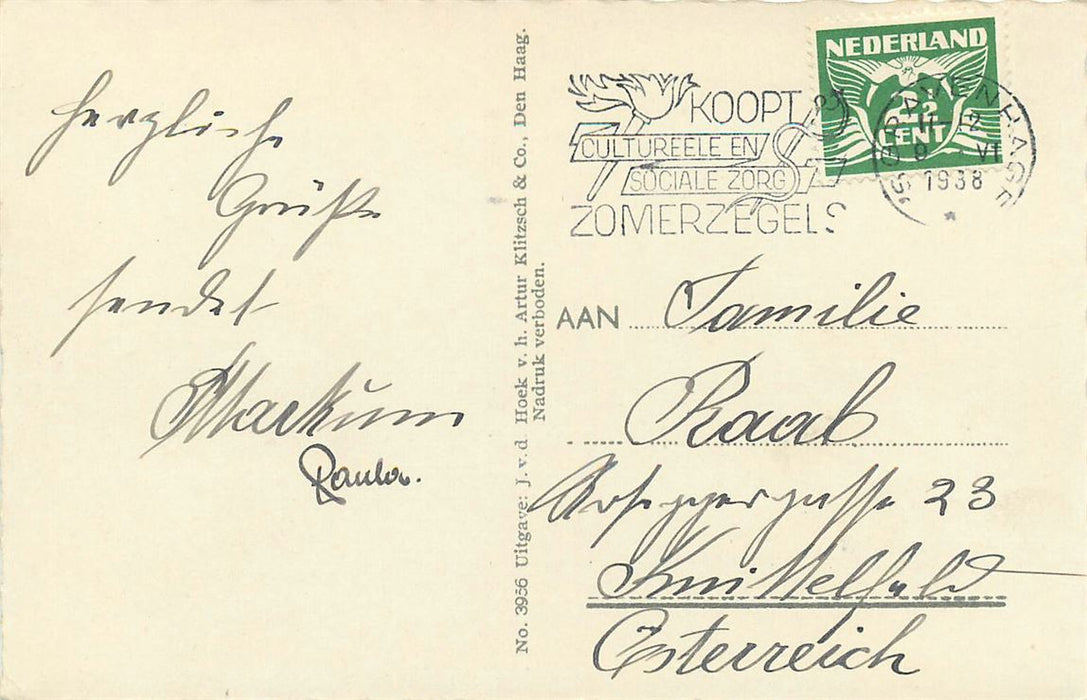 Herzliche
Grüße
sendet
Markum
Paula.
No. 3956 Uitgave: J. v. d. Hoek v. h. Artur Klitzsch & Co., Den Haag.
Nadruk verboden.
KOOPT
CULTUREELE EN
SOCIALE ZORG
ZOMERZEGELS
NEDERLAND
2½
CENT
'S GRAVENHAGE
12
9 VI
1938
AAN Familie
Raab
Roseggergasse 23
Knittelfeld
Österreich